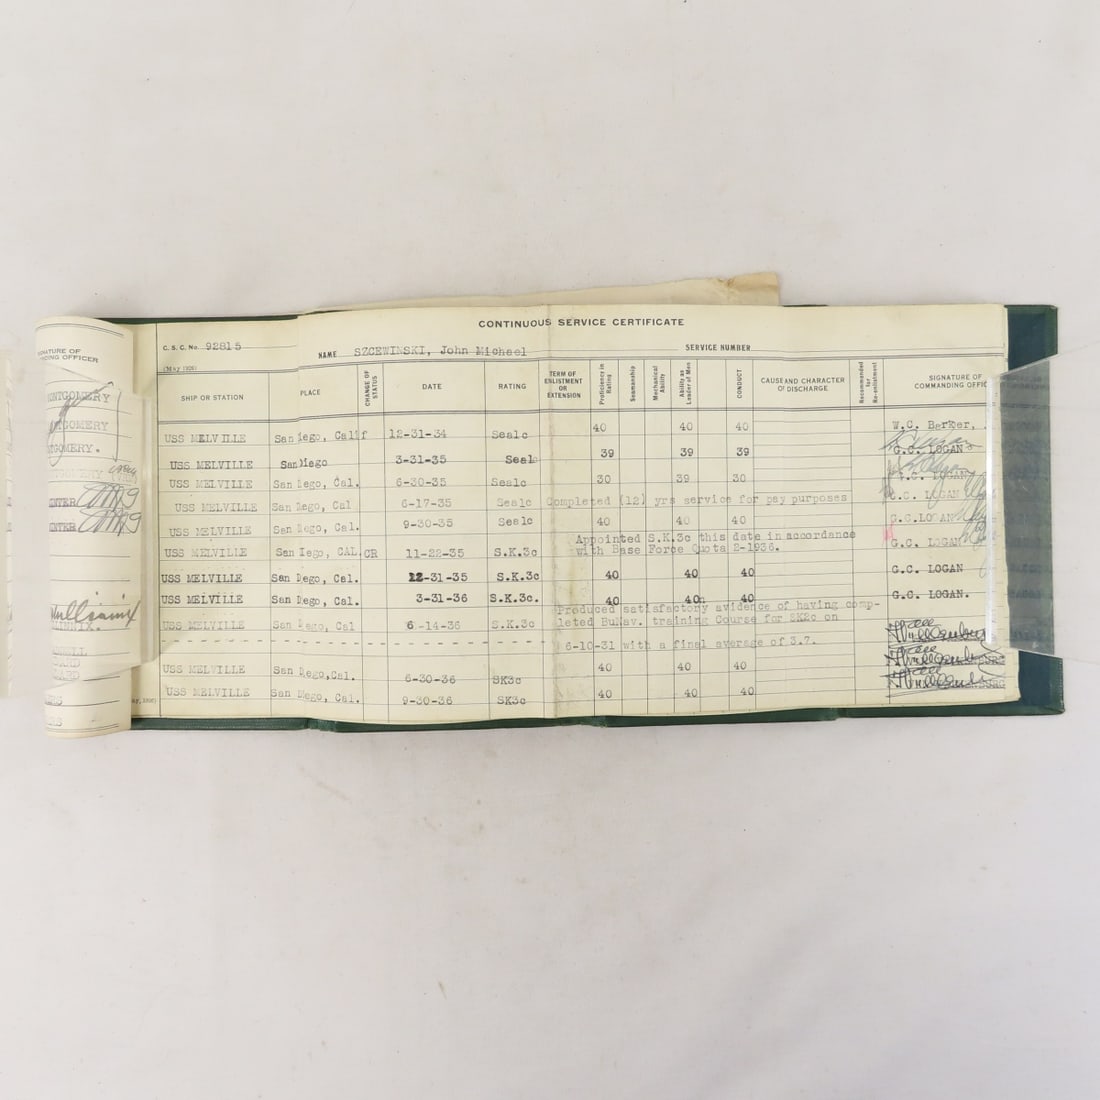 CONTINUOUS SERVICE CERTIFICATE
C. S. C. No. 92815
NAME SZCEWINSKI, John Michael SERVICE NUMBER
(May 1926)
SIGNATURE OF COMMANDING OFFICER
SHIP OR STATION PLACE CHANGE OF STATUS DATE RATING TERM OF ENLISTMENT OR EXTENSION Proficiency in Rating Seamanship Mechanical Ability Ability as Leader of Men CONDUCT CAUSE AND CHARACTER OF DISCHARGE Recommended for Re-enlistment SIGNATURE OF COMMANDING OFFIC
USS MELVILLE San iego, Calif 12-31-34 Sea1c 40 40 40 W.C. Barker,
USS MELVILLE San iego 3-31-35 Sea1c 39 39 39 G.C. LOGAN
USS MELVILLE San iego, Cal. 6-30-35 Sea1c 30 39 30 LOGAN
USS MELVILLE San iego, Cal 6-17-35 Sea1c Completed (12) yrs service for pay purposes G.C. LOGAN
USS MELVILLE San iego, Cal. 9-30-35 Sea1c 40 40 40 G.C.LOGAN
USS MELVILLE San iego, CAL. CR 11-22-35 S.K.3c Appointed S.K.3c this date in accordance
with Base Force Quota 2-1936. G.C. LOGAN
USS MELVILLE San iego, Cal. 12-31-35 S.K.3c 40 40 40 G.C. LOGAN
USS MELVILLE San iego, Cal. 3-31-36 S.K.3c. 40 40 40 G.C. LOGAN.
USS MELVILLE San iego, Cal 6-14-36 S.K.3c Produced satisfactory avidence of having comp-
leted BuNav. training Course for SK2c on
6-10-31 with a final average of 3.7.
USS MELVILLE San iego,Cal. 6-30-36 SK3c 40 40 40
USS MELVILLE San iego, Cal. 9-30-36 SK3c 40 40 40
NATURE OF
DING OFFICER
ONTGOMERY
TGOMERY
TGOMERY.